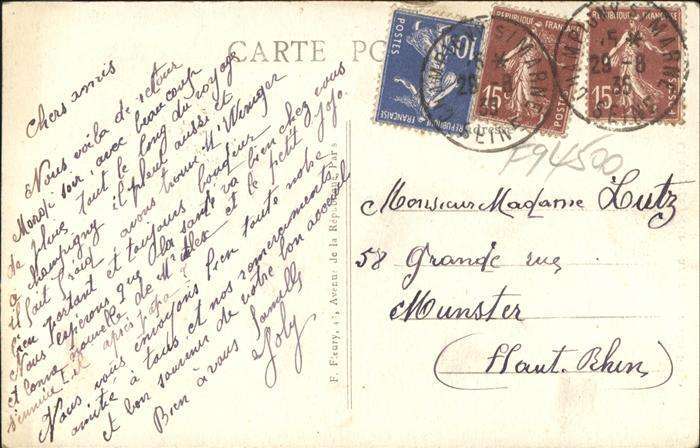 CARTE PO
Chers amis
Nous voila de retour
Mardi soir avec beaucoup
de pluie tout le long du voyage
a Champigny il pleut aussi et
il fait froid avons trouvé Mr Winiger
bien portant et toujours bonjour
Nous espérons que la santé va bien chez vous
et bonne nouvelle de Mr Alex et le petit Jojo
s'ennuie t.il après papa
Nous vous envoyons bien toute notre
amitié à tous et nos remerciements
et bon souvenir de votre bon accueil
Bien à vous Famille
Joly
F. Fleury, Avenue de la République, Paris
POSTES
10c
REPUBLIQUE FRANÇAISE
REPUBLIQUE FRANÇAISE
15c
REPUBLIQUE FRANÇAISE
15c
29-8
35
SEINE
MARNE
29-8
35
SEINE
Adresse
F94500
Monsieur Madame Lutz
58 Grande rue
Munster
(Haut. Rhin)